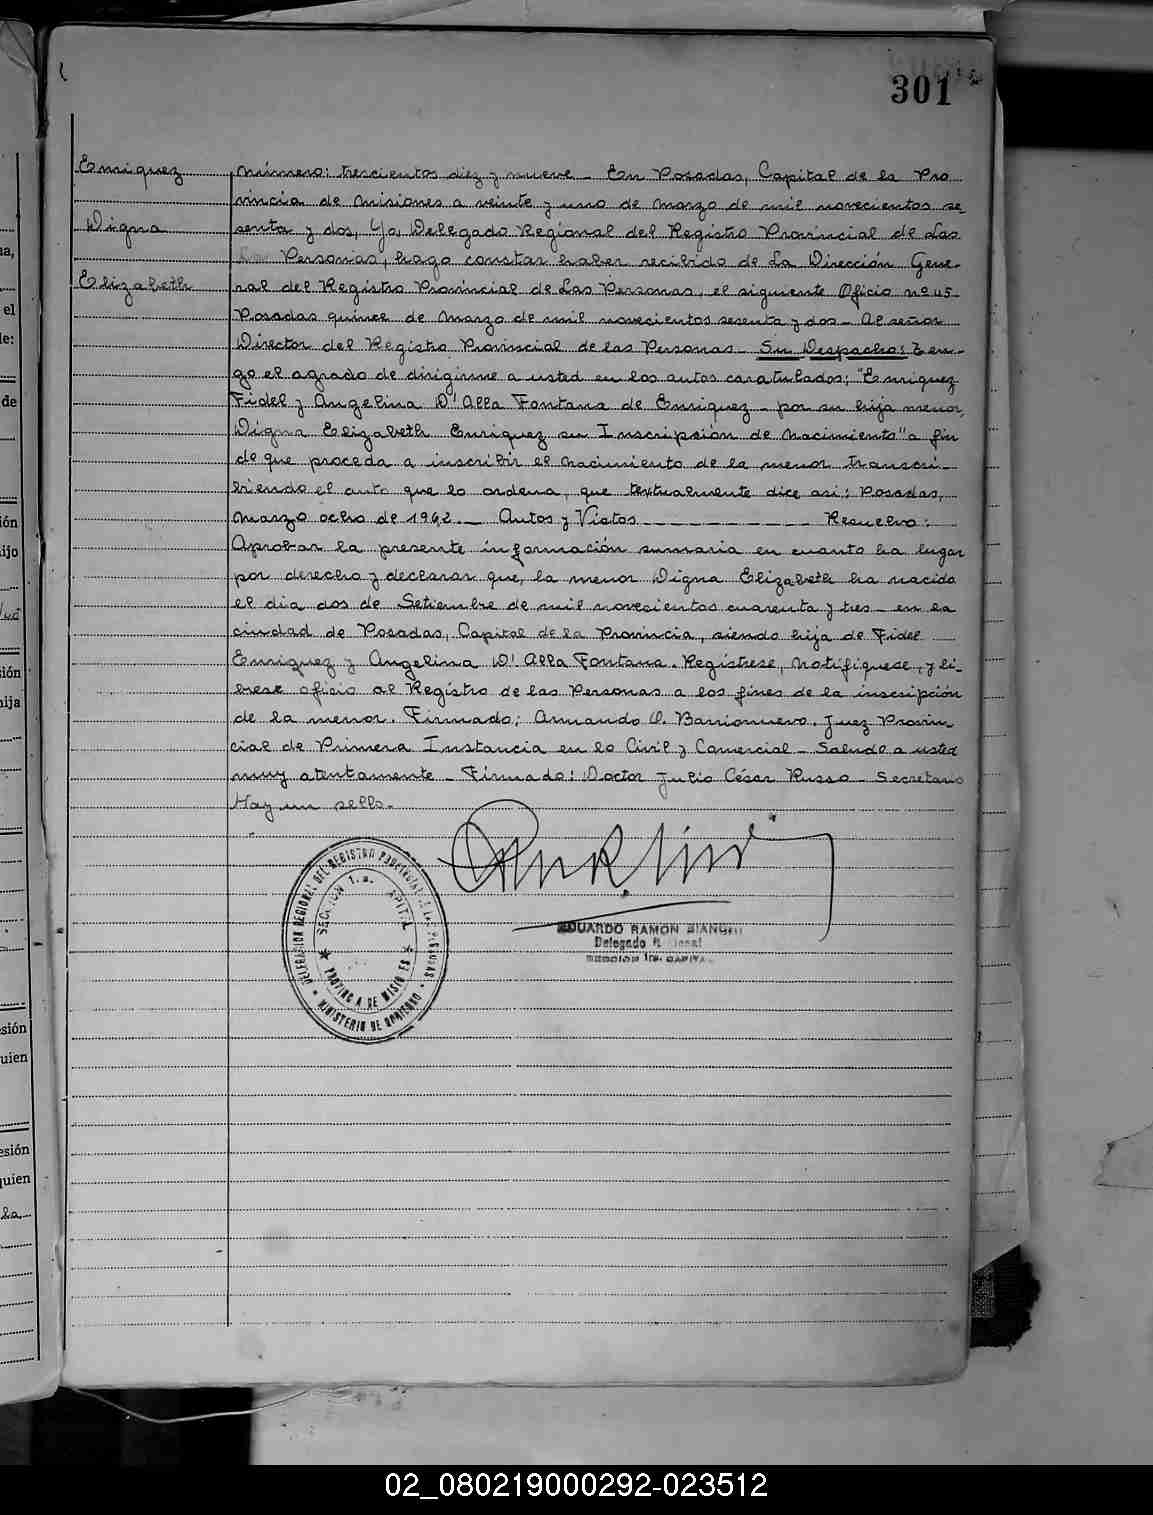 301
Enriquez
Digna
Elizabeth
Número: trescientos diez y nueve - En Posadas, Capital de la Pro
vincia de Misiones a veinte y uno de Marzo de mil novecientos se
senta y dos, Yo, Delegado Regional del Registro Provincial de Las
Personas, hago constar haber recibido de La Dirección Gene-
ral del Registro Provincial de Las Personas, el siguiente Oficio nº 45.
Posadas quince de Marzo de mil novecientos sesenta y dos - Al señor
Director del Registro Provincial de las Personas - Su Despacho: Ten-
go el agrado de dirigirme a usted en los autos caratulados; "Enriquez
Fidel y Angelina D'Alla Fontana de Enriquez - por su hija menor,
Digna Elizabeth Enriquez su Inscripsión de Nacimiento" a fin
de que proceda a inscribir el nacimiento de la menor transcri-
biendo el auto que lo ordena, que textualmente dice así: Posadas,
Marzo ocho de 1962 - Autos y Vistos - - - - - - - - - - Resuelvo:
Aprobar la presente información sumaria en cuanto ha lugar
por derecho y declarar que, la menor Digna Elizabeth ha nacido
el día dos de Setiembre de mil novecientos cuarenta y tres - en la
ciudad de Posadas, Capital de la Provincia, siendo hija de Fidel
Enriquez y Angelina D'Alla Fontana. Regístrese, Notifíquese, y lí-
brese oficio al Registro de las Personas a los fines de la inscripción
de la menor. Firmado; Armando O. Barrionuevo. Juez Provin
cial de Primera Instancia en lo Civil y Comercial - Saludo a usted
muy atentamente - Firmado: Doctor Julio César Russo - Secretario
Hay un sello.-
DELEGACION REGIONAL DEL REGISTRO PROVINCIAL DE LAS PERSONAS
SECCION 1.a. CAPITAL
PROVINCIA DE MISIONES
MINISTERIO DE GOBIERNO
EDUARDO RAMON BIANCHI
Delegado Regional
SECCION 1ra. CAPITAL
el
de
ión
ijo
sión
hija
esión
quien
esión
quien
la
02_080219000292-023512